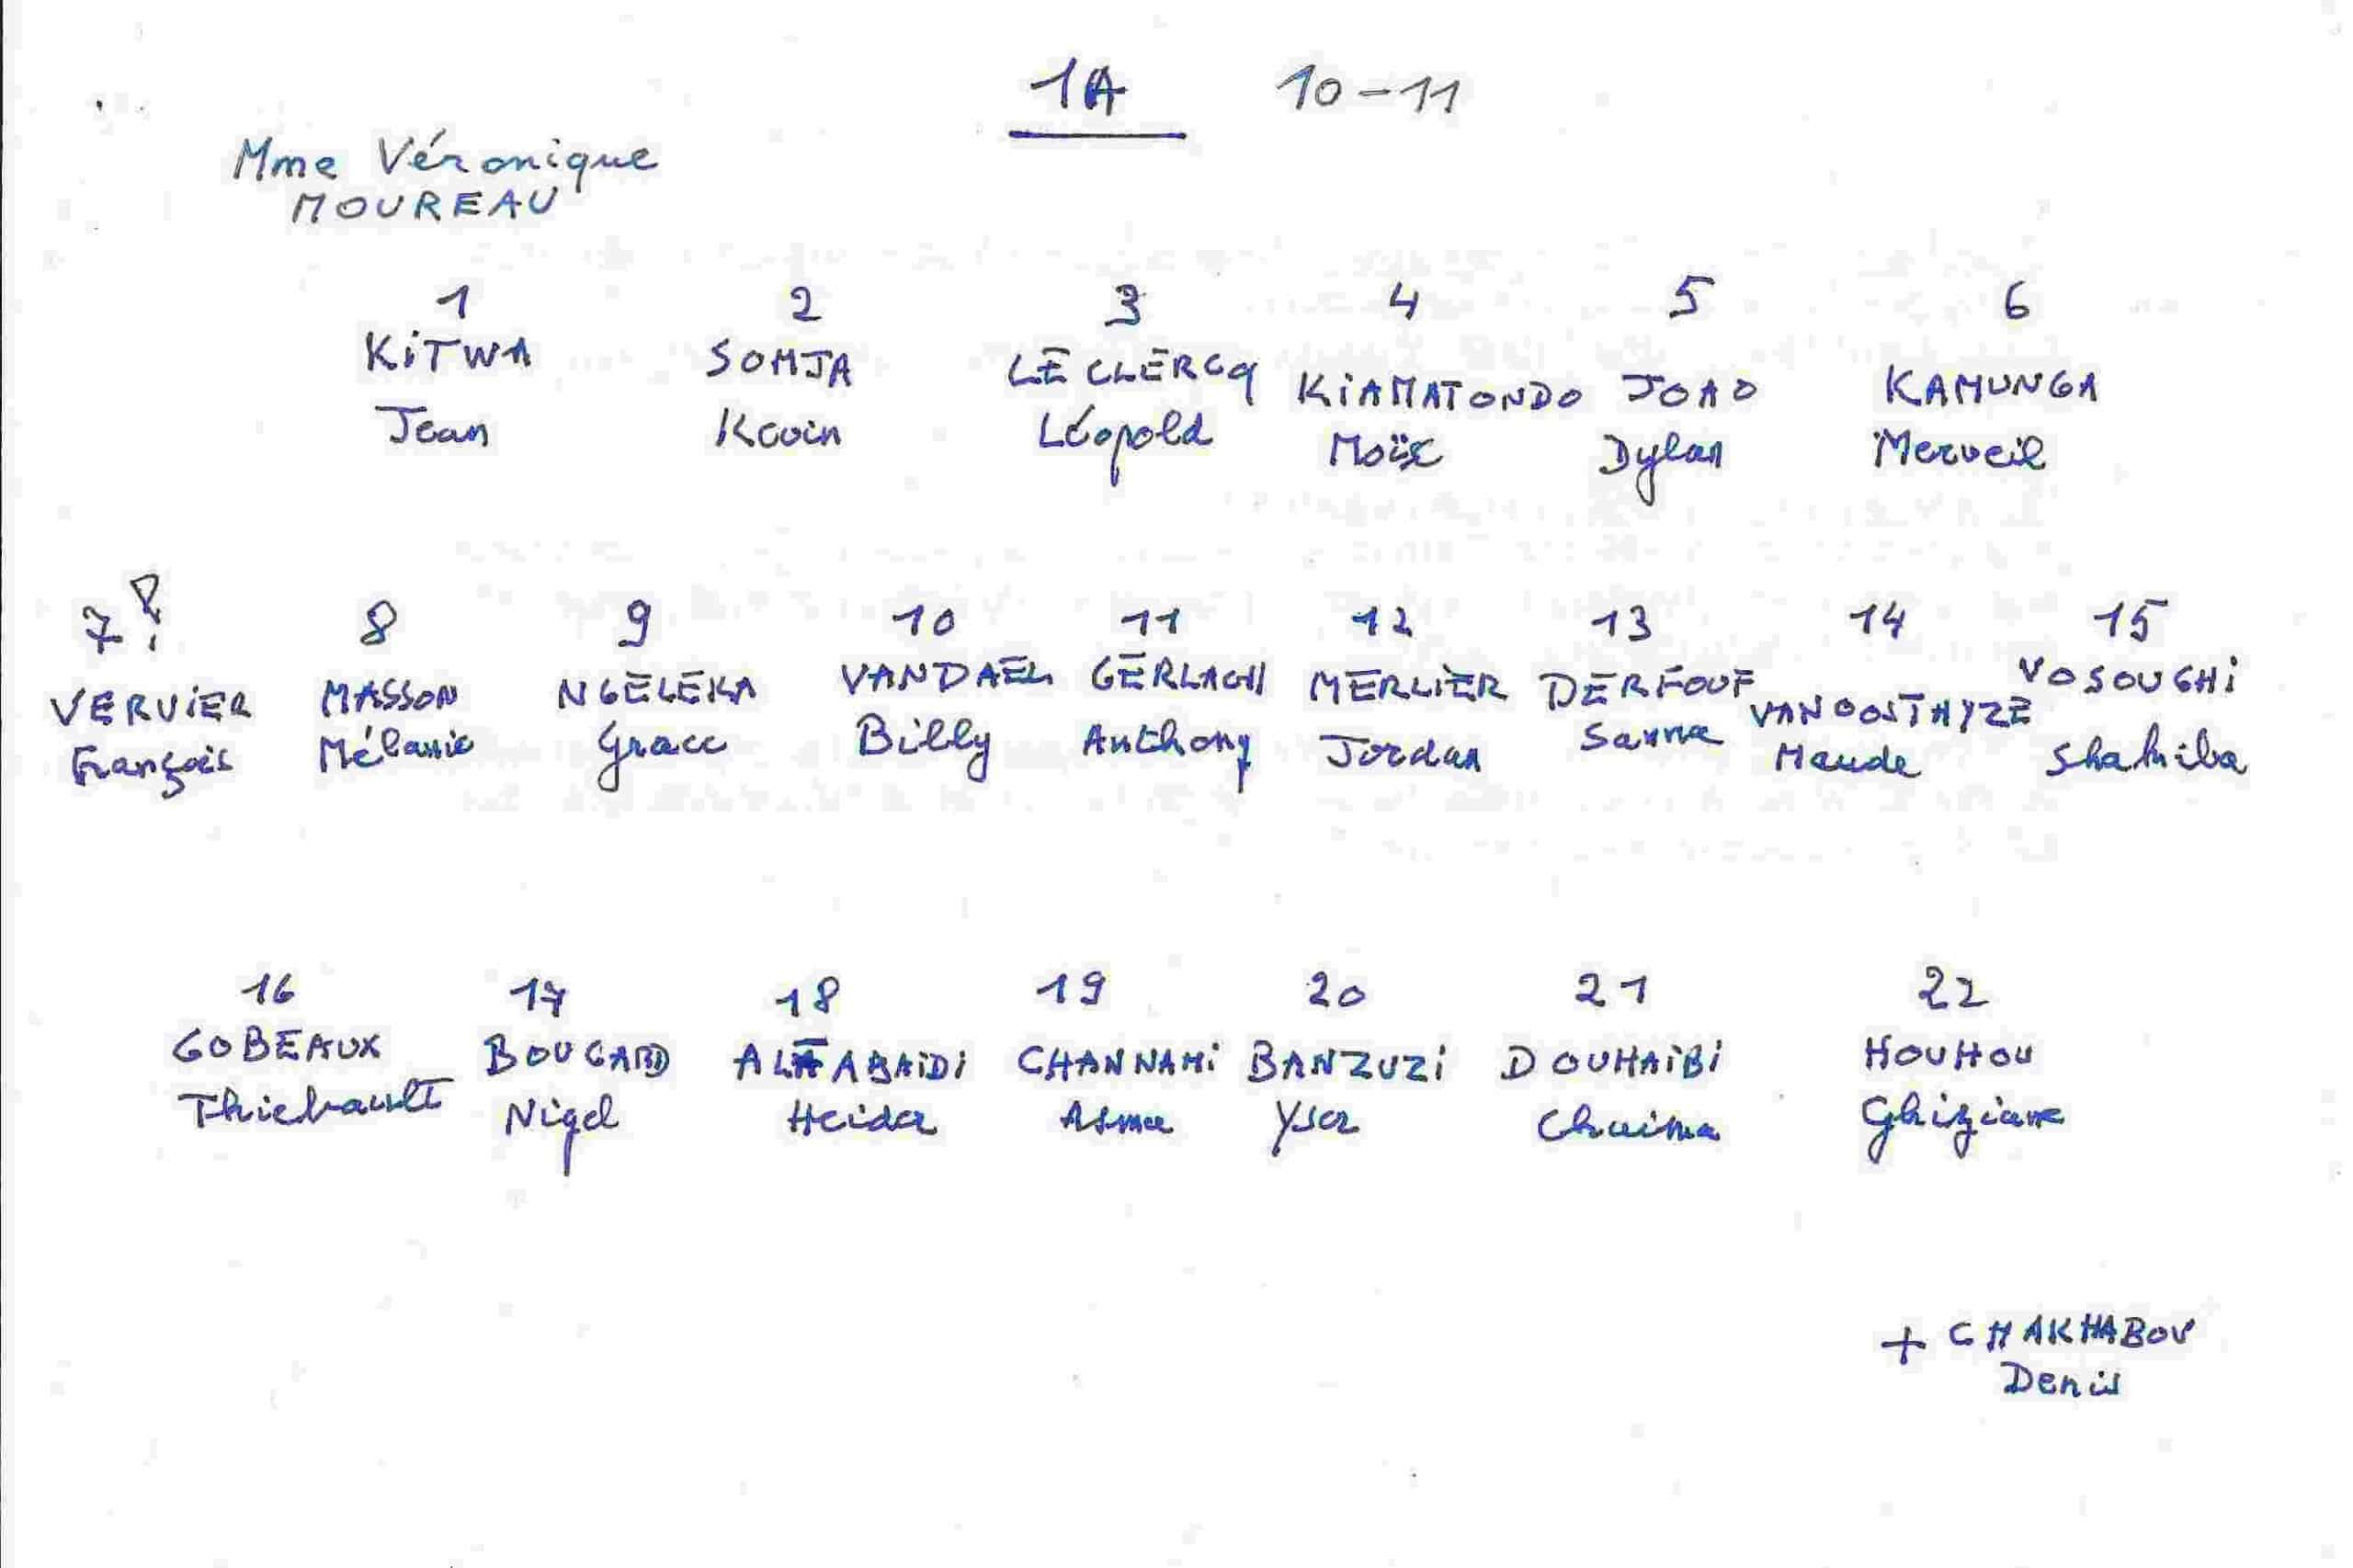 1A 10-11
Mme Véronique
MOUREAU
1 2 3 4 5 6
KiTWA SOMJA LECLERCQ KiAMATONDO JOAO KAMUNGA
Jean Kevin Léopold Moïse Dylan Merveil
7 8 9 10 11 12 13 14 15
VERViER MASSON NGELEKA VANDAEL GERLACH MERLiER DERFOUF VANOOSTHYZE VOSOUGHi
François Mélanie Grace Billy Anthony Jordan Sanna Maude Shahiba
16 17 18 19 20 21 22
GOBEAUX BOUGARD CHANNAHi BANZUZi DOUHAiBi HOUHOU
Thiebault Nigel Heider Asmae Yser Chaima Ghiziane
+ CHAKHABOV
Denis